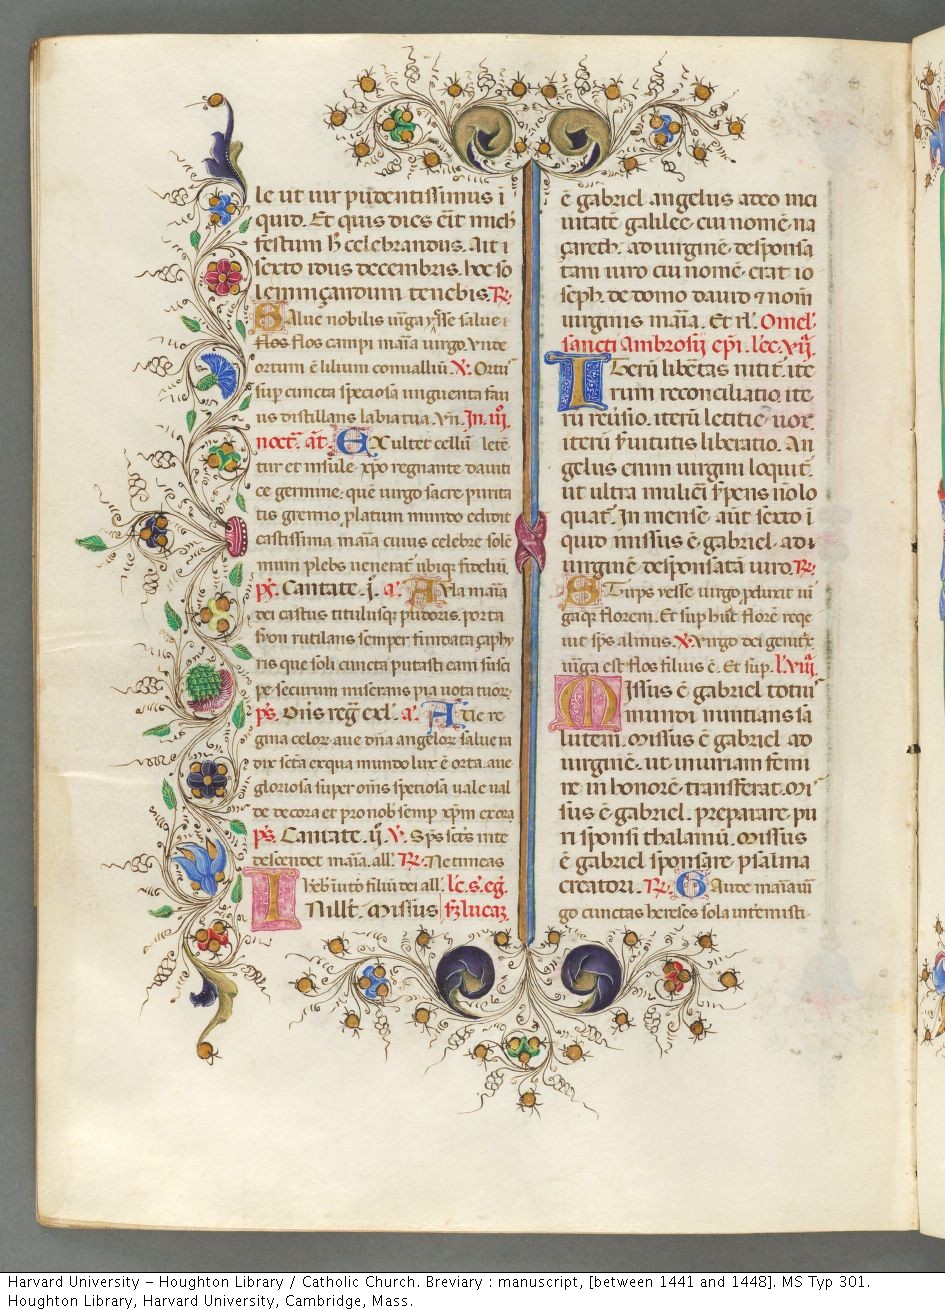 le ut uir prudentissimus i
quid. Et quis dies erit mich
festum hoc celebrandus. Ait i
sexto idus decembris. hec so
lemniçandum tenebis. R.
Salue nobilis uirga yesse salue
flos campi maria uirgo. Unde
ortum ē lilium conualliū. V. Orti
sup cuncta speciosa unguenta fau
us distillans labia tua. Vn. In iij.
noct. an. Exultet cellum lete
tur et insule xpo regnante dauiti
ce germine. quē uirgo sacre purita
tis gremio platum mundo edidit
castissima maria cuius celebre sole
mnum plebs uenerat ubiq fideliū.
ps. Cantate. j. a. Aula maria
dei castus titulusq pudoris. porta
syon rutilans semper fundata çaphy
ris que soli cuncta putasti cani
pe securum miserans pia uota tuor
ps. Dns reg. exl. a. Aue re
gina celor aue dna angelor salue ra
dix scta ex qua mundo lux ē orta. aue
gloriosa super omis speciosa uale ual
de decora et pro nob semp xpm exora
ps. Cantate. ij. V. Sps scts in te
descendet maria. all. R. Ne timeas
Iheb in utō filiū dei all. lc. s. eg.
In illt. Missus fz lucaz
ē gabriel angelus a deo in ci
uitatē galilee cui nomē na
çareth. ad uirginē desponsa
tam uiro cui nomē erat io
seph. de domo dauid 7 nom
uirginis maria. Et rl. Omel.
sancti Ambrosij epi. lec. vij.
Iterū libertas nitit. ite
rum reconciliatio. ite
rū reuisio. iterū letitie uox.
iterū uirtutis liberatio. An
gelus enim uirgini loquit
ut ultra mulieri serpens nō lo
quat. In mense aut sexto i
quid missus ē gabriel. ad
uirginē desponsatā uiro. R.
Stirps yesse uirgo pduxit ui
gāq florem. Et sup hūc florē reqe
uit sps almus. V. Virgo dei genitx
uirga est flos filius ē. Et sup. l. viij.
Missus ē gabriel totiu
mundi nuntians sa
lutem. Missus ē gabriel ad
uirginē. ut iniuriam femi
ne in honorē transferat. Mi
sus ē gabriel. preparare pu
ri sponsi thalamū. Missus
ē gabriel sponsare psalma
creatori. R. Gaude maria uir
go cunctas hereses sola interemisti
Harvard University – Houghton Library / Catholic Church. Breviary : manuscript, [between 1441 and 1448]. MS Typ 301.
Houghton Library, Harvard University, Cambridge, Mass.